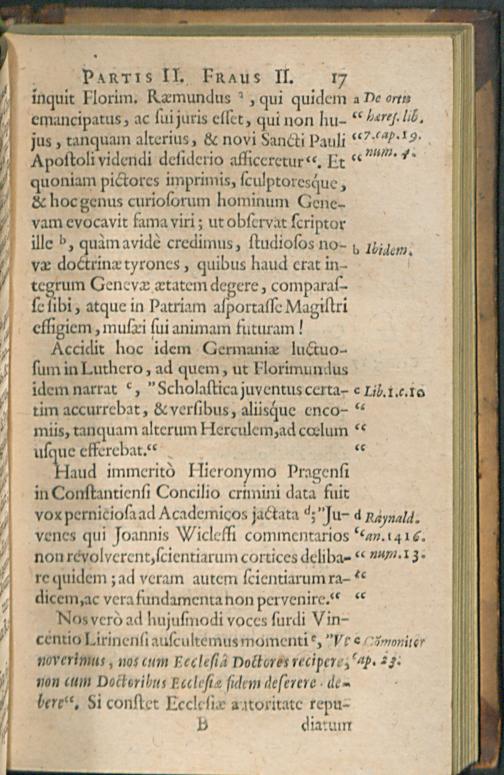 PARTIS II. FRAUS II. 17
inquit Florim. Ræmundus ª, qui quidem a De ortu
emancipatus, ac sui juris esset, qui non hu- “ hæres. lib.
jus, tanquam alterius, & novi Sancti Pauli “ 7. cap. 19.
Apostoli videndi desiderio afficeretur“. Et “ num. 4.
quoniam pictores imprimis, sculptoresque,
& hoc genus curiosorum hominum Gene-
vam evocavit fama viri; ut observat scriptor
ille b, quàm avidè credimus, studiosos no- b Ibidem.
væ doctrinæ tyrones, quibus haud erat in-
tegrum Genevæ ætatem degere, comparas-
se sibi, atque in Patriam asportasse Magistri
effigiem, musæi sui animam futuram!
Accidit hoc idem Germaniæ luctuo-
sum in Luthero, ad quem, ut Florimundus
idem narrat c, ”Scholastica juventus certa- c Lib. 1. c. 10
tim accurrebat, & versibus, aliisque enco- “
miis, tanquam alterum Herculem, ad cœlum “
usque efferebat.“ “
Haud immeritò Hieronymo Pragensi
in Constantiensi Concilio crimini data fuit
vox perniciosa ad Academicos jactata d; ”Ju- d Raynald.
venes qui Joannis Wicleffi commentarios “ an. 1416.
non revolverent, scientiarum cortices deliba- “ num. 13.
re quidem; ad veram autem scientiarum ra- “
dicem, ac vera fundamenta non pervenire.“ “
Nos verò ad hujusmodi voces surdi Vin-
centio Lirinensi auscultemus momenti e, ”Ut e Cõmonitor
noverimus, nos cum Ecclesiâ Doctores recipere, cap. 23.
non cum Doctoribus Ecclesiæ fidem deserere de-
bere“. Si constet Ecclesiæ autoritate repu-
B diatum